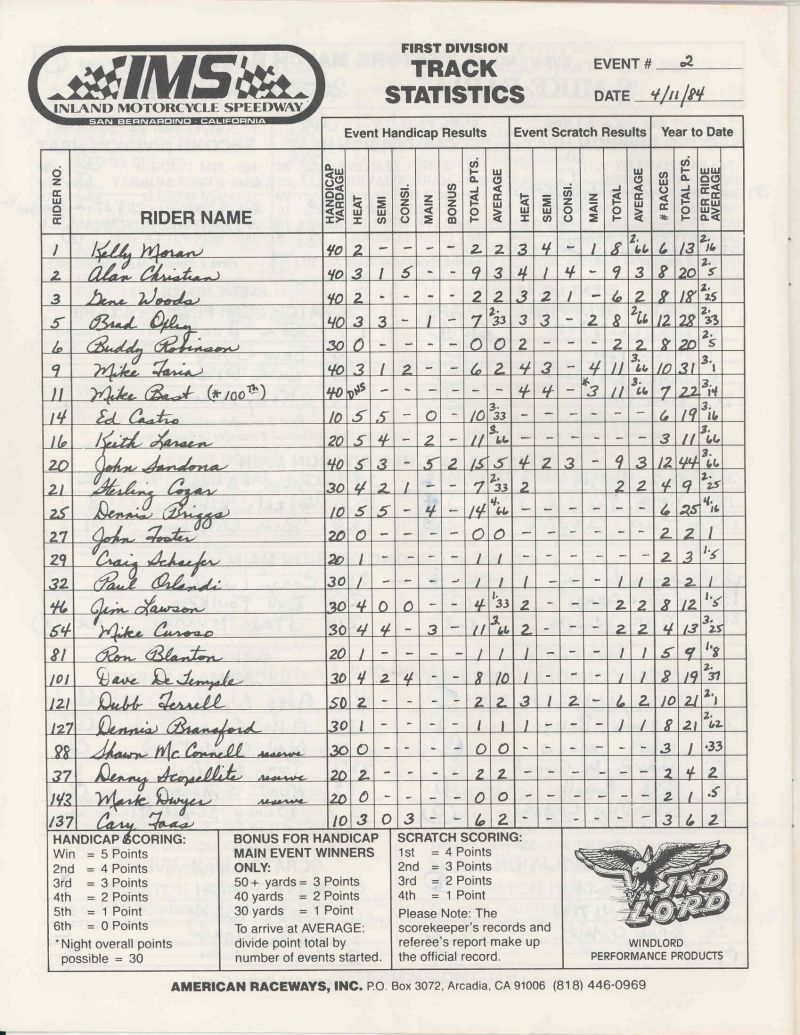 IMS
INLAND MOTORCYCLE SPEEDWAY
SAN BERNARDINO · CALIFORNIA
FIRST DIVISION
TRACK
STATISTICS
EVENT # 2
DATE 4/11/84
Event Handicap Results Event Scratch Results Year to Date
RIDER NO. RIDER NAME HANDICAP YARDAGE HEAT SEMI CONSI. MAIN BONUS TOTAL PTS. AVERAGE HEAT SEMI CONSI. MAIN TOTAL AVERAGE # RACES TOTAL PTS. PER RIDE AVERAGE
1 Kelly Moran 40 2 - - - - 2 2 3 4 - 1 8 2.66 6 13 2.16
2 Alan Christian 40 3 1 5 - - 9 3 4 1 4 - 9 3 8 20 2.5
3 Gene Woods 40 2 - - - - 2 2 3 2 1 - 6 2 8 18 2.25
5 Brad Oxley 40 3 3 - 1 - 7 2.33 3 3 - 2 8 2.66 12 28 2.33
6 Buddy Robinson 30 0 - - - - 0 0 2 - - - 2 2 8 20 2.5
9 Mike Faria 40 3 1 2 - - 6 2 4 3 - 4 11 3.66 10 31 3.1
11 Mike Bast (*100TH) 40 DNS - - - - - - 4 4 - *3 11 3.66 7 22 3.14
14 Ed Castro 10 5 5 - 0 - 10 3.33 - - - - - - 6 19 3.16
16 Keith Larsen 20 5 4 - 2 - 11 3.66 - - - - - - 3 11 3.66
20 John Sandona 40 5 3 - 5 2 15 5 4 2 3 - 9 3 12 44 3.66
21 Sterling Cozar 30 4 2 1 - - 7 2.33 2 - - - 2 2 4 9 2.25
25 Dennis Briggs 10 5 5 - 4 - 14 4.66 - - - - - - 6 25 4.16
27 John Foster 20 0 - - - - 0 0 - - - - - - 2 2 1
29 Craig Schaefer 20 1 - - - - 1 1 - - - - - - 2 3 1.5
32 Paul Orlandi 30 1 - - - - 1 1 1 - - - 1 1 2 2 1
46 Jim Lawson 30 4 0 0 - - 4 1.33 2 - - - 2 2 8 12 1.5
54 Mike Curoso 30 4 4 - 3 - 11 3.66 2 - - - 2 2 4 13 3.25
81 Ron Blanton 20 1 - - - - 1 1 1 - - - 1 1 5 9 1.8
101 Dave De Temple 30 4 2 4 - - 8 10 1 - - - 1 1 8 19 2.37
121 Dubb Ferrell 50 2 - - - - 2 2 3 1 2 - 6 2 10 21 2.1
127 Dennis Bransford 30 1 - - - - 1 1 1 - - - 1 1 8 21 2.62
88 Shawn Mc Connell reserve 30 0 - - - - 0 0 - - - - - - 3 1 .33
37 Denny Scopellite reserve 20 2 - - - - 2 2 - - - - - - 2 4 2
143 Mark Dwyer reserve 20 0 - - - - 0 0 - - - - - - 2 1 .5
137 Cary Faas 10 3 0 3 - - 6 2 - - - - - - 3 6 2
HANDICAP SCORING:
Win = 5 Points
2nd = 4 Points
3rd = 3 Points
4th = 2 Points
5th = 1 Point
6th = 0 Points
*Night overall points
possible = 30
BONUS FOR HANDICAP
MAIN EVENT WINNERS
ONLY:
50+ yards = 3 Points
40 yards = 2 Points
30 yards = 1 Point
To arrive at AVERAGE:
divide point total by
number of events started.
SCRATCH SCORING:
1st = 4 Points
2nd = 3 Points
3rd = 2 Points
4th = 1 Point
Please Note: The
scorekeeper's records and
referee's report make up
the official record.
WIND
LORD
WINDLORD
PERFORMANCE PRODUCTS
AMERICAN RACEWAYS, INC. P.O. Box 3072, Arcadia, CA 91006 (818) 446-0969